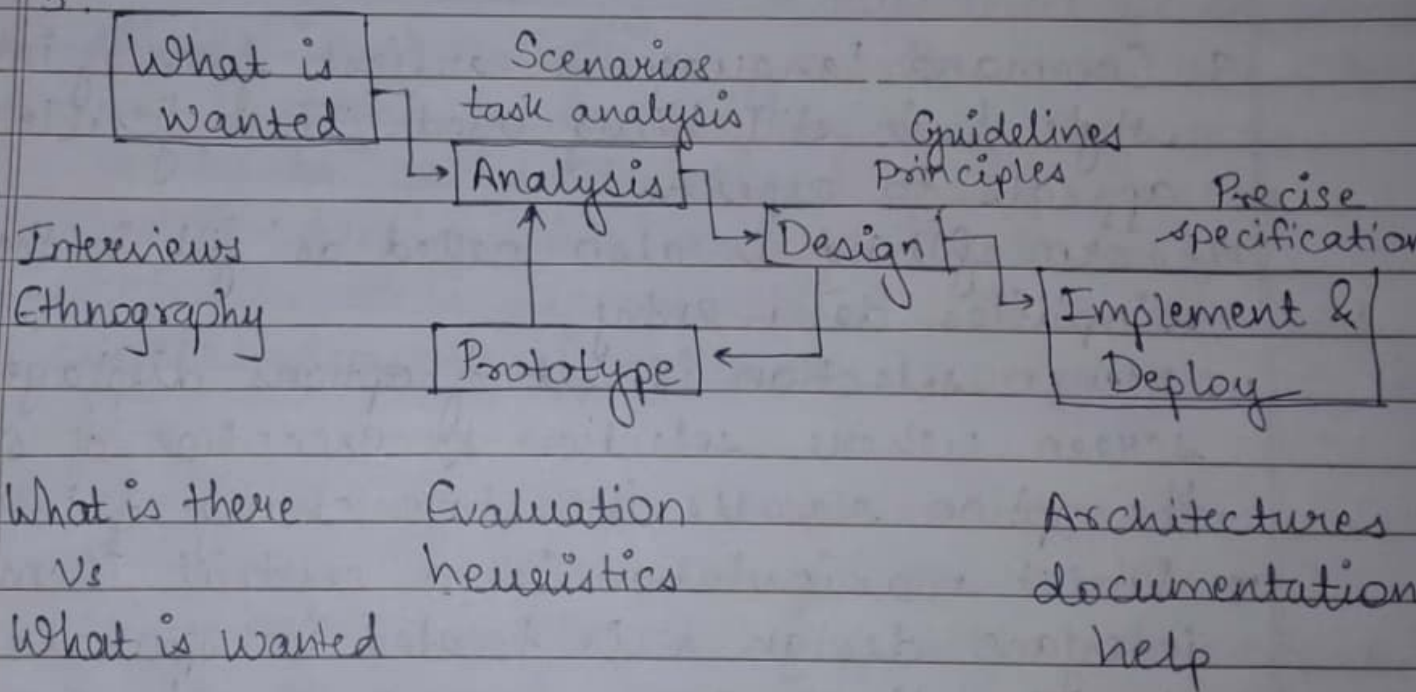 What is
wanted
Scenarios
task analysis
Analysis
Guidelines
principles
Design
Precise
specification
Implement &
Deploy
Interviews
Ethnography
Prototype
What is there
Vs
What is wanted
Evaluation
heuristics
Architectures
documentation
help